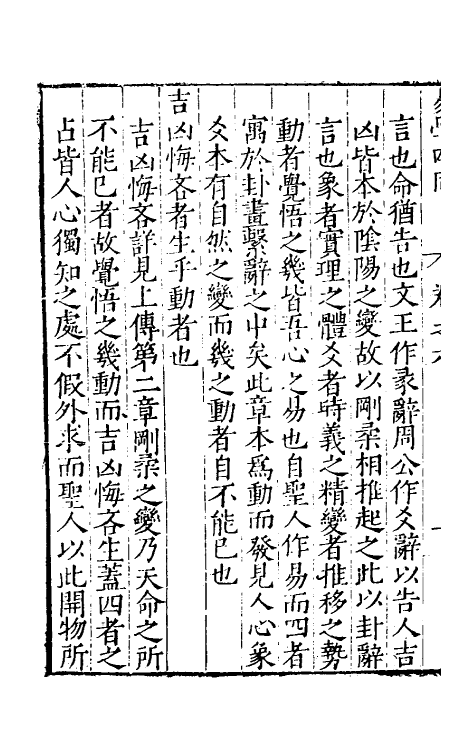 言也命猶告也文王作彖辭周公作爻辭以告人吉
凶皆本於陰陽之變故以剛柔相推起之此以卦辭
言也象者實理之體爻者時義之精變者推移之勢
動者覺悟之幾皆吾心之易也自聖人作易而四者
寓於卦畫繫辭之中矣此章本為動而發見人心象
爻本有自然之變而幾之動者自不能已也
吉凶悔吝者生乎動者也
吉凶悔吝詳見上傳第二章剛柔之變乃天命之所
不能已者故覺悟之幾動而吉凶悔吝生蓋四者之
占皆人心獨知之處不假外求而聖人以此開物所